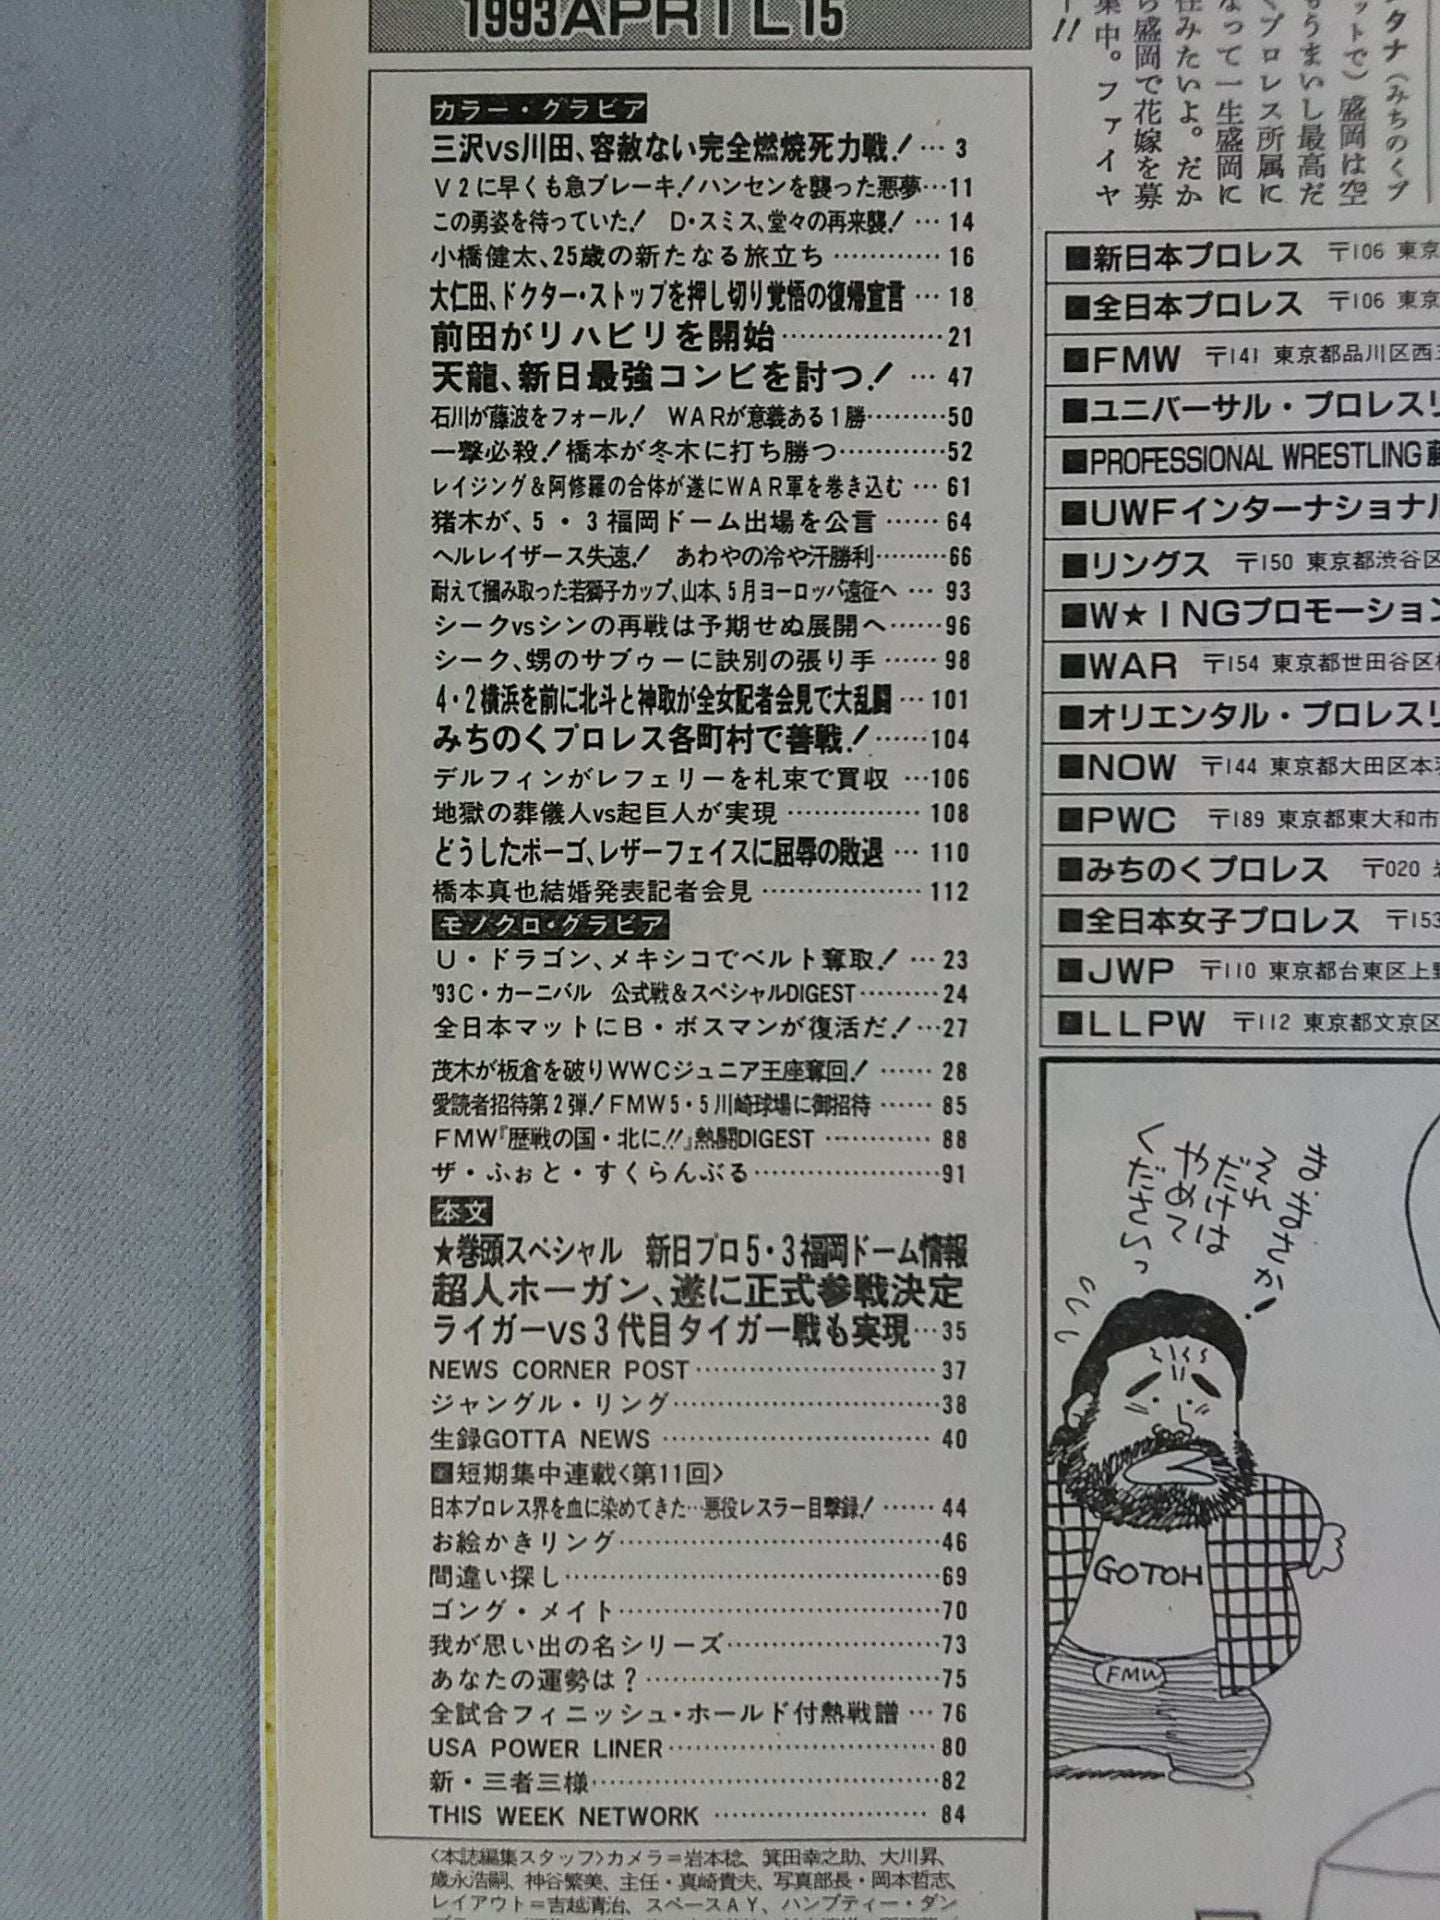 1993 APRIL 15
カラー・グラビア
三沢vs川田、容赦ない完全燃焼死力戦！… 3
V2に早くも急ブレーキ！ハンセンを襲った悪夢…11
この勇姿を待っていた！ D・スミス、堂々の再来襲！… 14
小橋健太、25歳の新たなる旅立ち………… 16
大仁田、ドクター・ストップを押し切り覚悟の復帰宣言… 18
前田がリハビリを開始………………21
天龍、新日最強コンビを討つ！… 47
石川が藤波をフォール！ WARが意義ある1勝………50
一撃必殺！橋本が冬木に打ち勝つ…………52
レイジング＆阿修羅の合体が遂にWAR軍を巻き込む… 61
猪木が、5・3福岡ドーム出場を公言…… 64
ヘルレイザース失速！ あわやの冷や汗勝利………66
耐えて掴み取った若獅子カップ、山本、5月ヨーロッパ遠征へ… 93
シークvsシンの再戦は予期せぬ展開へ……96
シーク、甥のサブゥーに訣別の張り手…… 98
4・2横浜を前に北斗と神取が全女記者会見で大乱闘… 101
みちのくプロレス各町村で善戦！……104
デルフィンがレフェリーを札束で買収…106
地獄の葬儀人vs起巨人が実現…………… 108
どうしたポーゴ、レザーフェイスに屈辱の敗退… 110
橋本真也結婚発表記者会見……………… 112
モノクロ・グラビア
U・ドラゴン、メキシコでベルト奪取！… 23
'93C・カーニバル 公式戦＆スペシャルDIGEST………24
全日本マットにB・ボスマンが復活だ！…27
茂木が板倉を破りWWCジュニア王座奪回！…… 28
愛読者招待第2弾！FMW5・5川崎球場に御招待…… 85
FMW『歴戦の国・北に!!』熱闘DIGEST………… 88
ザ・ふぉと・すくらんぶる…………………91
本文
★巻頭スペシャル 新日プロ5・3福岡ドーム情報
超人ホーガン、遂に正式参戦決定
ライガーvs3代目タイガー戦も実現…35
NEWS CORNER POST………………………37
ジャングル・リング…………………………38
生録GOTTA NEWS ………………………… 40
短期集中連載〈第11回〉
日本プロレス界を血に染めてきた…悪役レスラー目撃録！…… 44
お絵かきリング………………………………46
間違い探し……………………………………69
ゴング・メイト………………………………70
我が思い出の名シリーズ……………………73
あなたの運勢は？……………………………75
全試合フィニッシュ・ホールド付熱戦譜… 76
USA POWER LINER…………………………80
新・三者三様…………………………………82
THIS WEEK NETWORK …………………… 84
〈本誌編集スタッフ〉カメラ＝岩本稔、箕田幸之助、大川昇、
歳永浩嗣、神谷繁美、主任・真崎貴夫、写真部長・岡本哲志、
レイアウト＝吉越清治、スペースAY、ハンプティー・ダン
タナ（みちのくプ
ットで）盛岡は空
もうまいし最高だ
くプロレス所属に
なって一生盛岡に
住みたいよ。だか
ら盛岡で花嫁を募
集中。ファイヤ
ー!!
■新日本プロレス 〒106 東京
■全日本プロレス 〒106 東京
■FMW 〒141 東京都品川区西五
■ユニバーサル・プロレスリ
■PROFESSIONAL WRESTLING藤
■UWFインターナショナル
■リングス 〒150 東京都渋谷区
■W★INGプロモーション
■WAR 〒154 東京都世田谷区
■オリエンタル・プロレスリ
■NOW 〒144 東京都大田区本羽
■PWC 〒189 東京都東大和市
■みちのくプロレス 〒020 岩
■全日本女子プロレス 〒153
■JWP 〒110 東京都台東区上野
■LLPW 〒112 東京都文京区
き・きさか！
それ
だけは
やめて
くださいっ
GOTOH
FMW